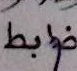 ضوابط